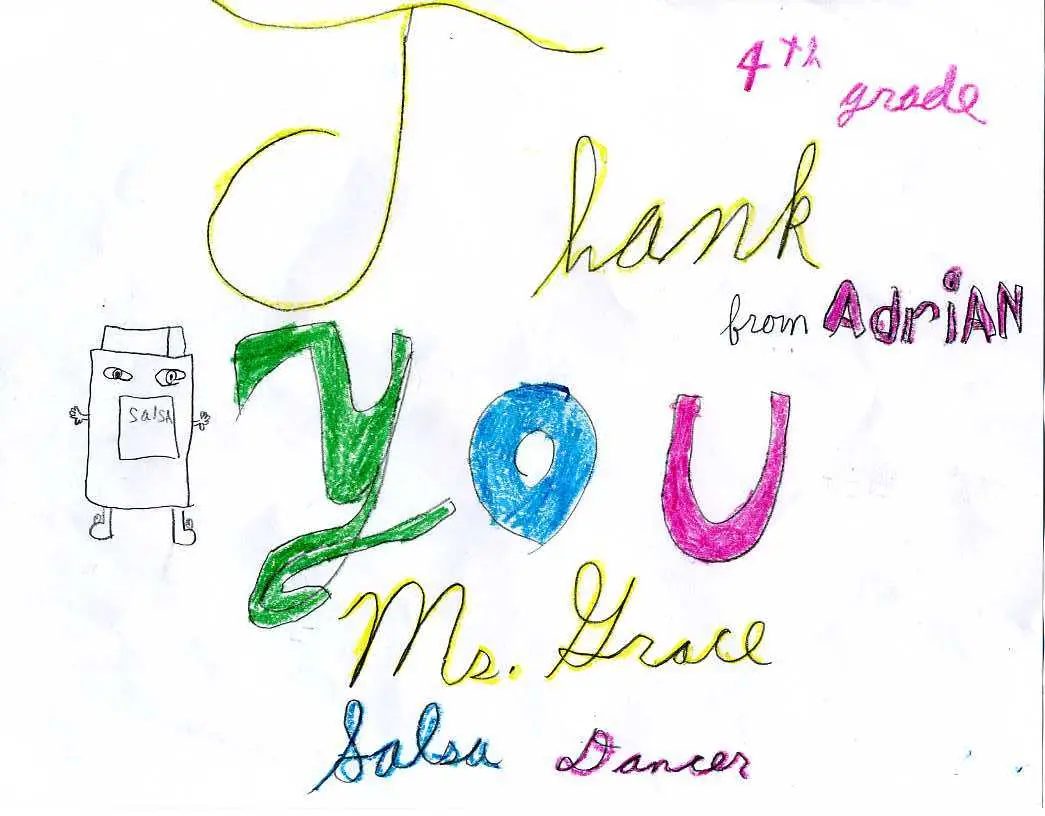 4th
grade
Thank
from AdriAN
SalSA
you
Ms. Grace
Salsa Dancer